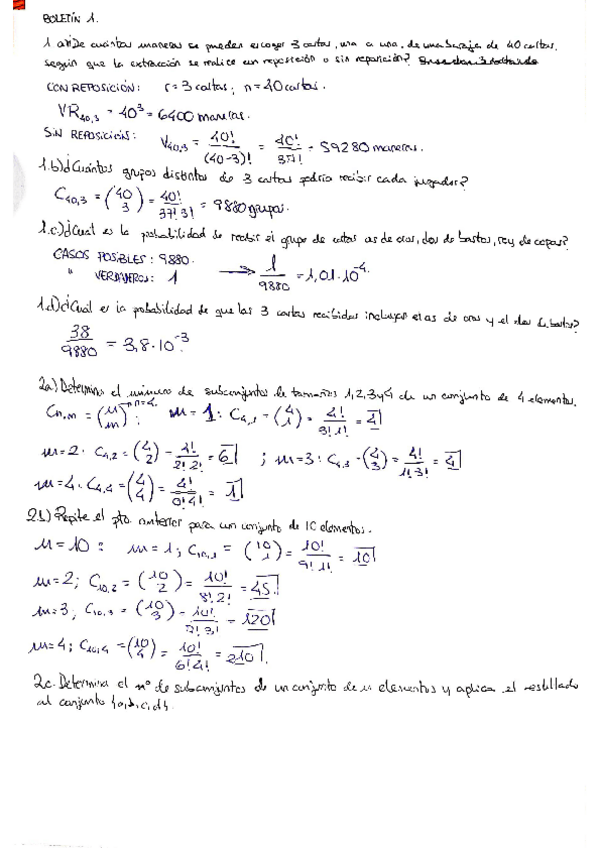 BOLETÍN 1.
1 a) ¿De cuántas maneras se pueden escoger 3 cartas, una a una, de una baraja de 40 cartas,
según que la extracción se realice con reposición o sin reposición?
CON REPOSICIÓN: r = 3 cartas; n = 40 cartas.
VR40,3 = 40³ = 6400 maneras.
SIN REPOSICIÓN: V40,3 = 40!/(40-3)! = 40!/37! = 59280 maneras.
1.b) ¿Cuántos grupos distintos de 3 cartas podría recibir cada jugador?
C40,3 = (40 3) = 40!/37!3! = 9880 grupos.
1.c) ¿Cuál es la probabilidad de recibir el grupo de cartas as de oros, dos de bastos, rey de copas?
CASOS POSIBLES: 9880.
" VERDADEROS: 1 → 1/9880 = 1,01·10⁻⁴.
1.d) ¿Cuál es la probabilidad de que las 3 cartas recibidas incluyan el as de oros y el dos de bastos?
38/9880 = 3,8·10⁻³
2a) Determina el número de subconjuntos de tamaños 1,2,3 y 4 de un conjunto de 4 elementos.
Cn,m = (n m) → n=4. m = 1: C4,1 = (4 1) = 4!/3!1! = 4
m=2: C4,2 = (4 2) = 4!/2!2! = 6 ; m=3: C4,3 = (4 3) = 4!/1!3! = 4
m=4: C4,4 = (4 4) = 4!/0!4! = 1
2.b) Repite el pto. anterior para un conjunto de 10 elementos.
n = 10: m=1; C10,1 = (10 1) = 10!/9!1! = 10
m=2; C10,2 = (10 2) = 10!/8!2! = 45
m=3; C10,3 = (10 3) = 10!/7!3! = 120
m=4; C10,4 = (10 4) = 10!/6!4! = 210
2c. Determina el nº de subconjuntos de un conjunto de n elementos y aplica el resultado
al conjunto {a,b,c,d}.